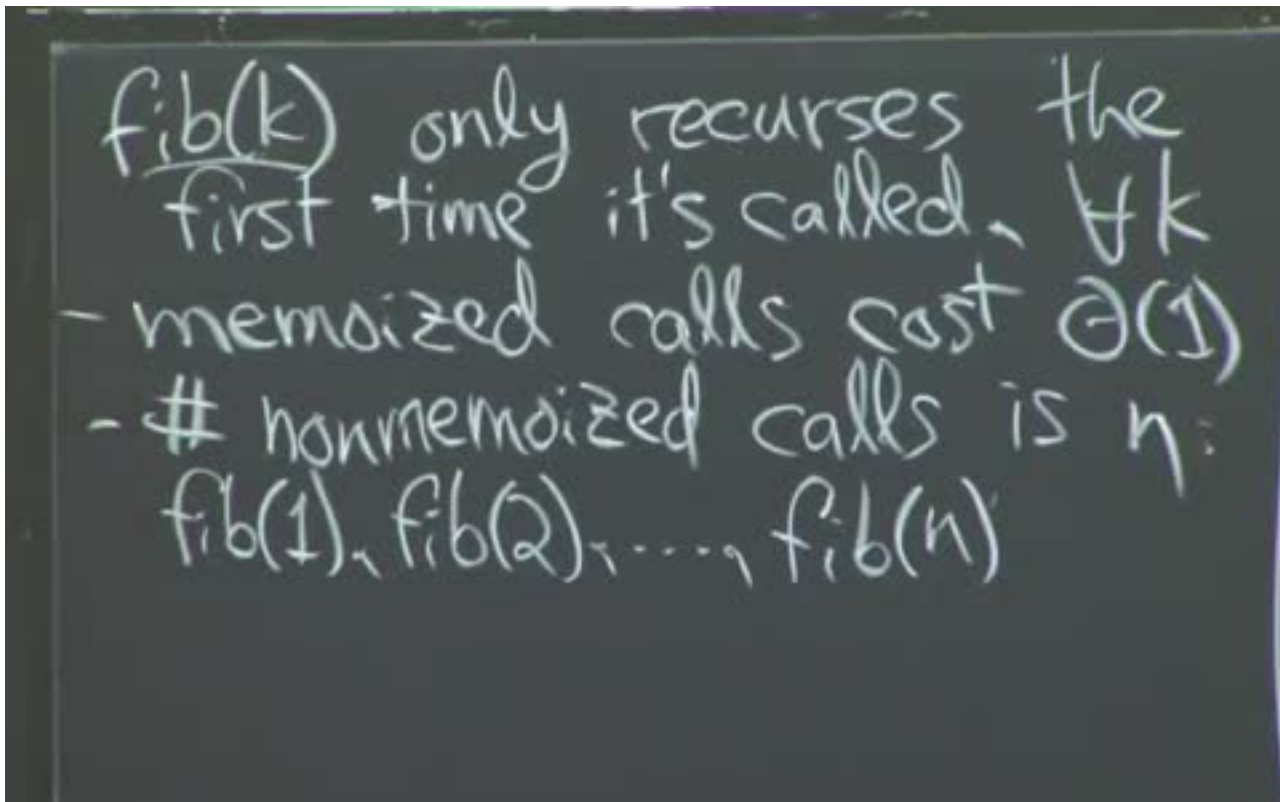 fib(k) only recurses the
first time it's called, ∀k
- memoized calls cost Θ(1)
- # nonmemoized calls is n:
fib(1), fib(2), ...., fib(n)